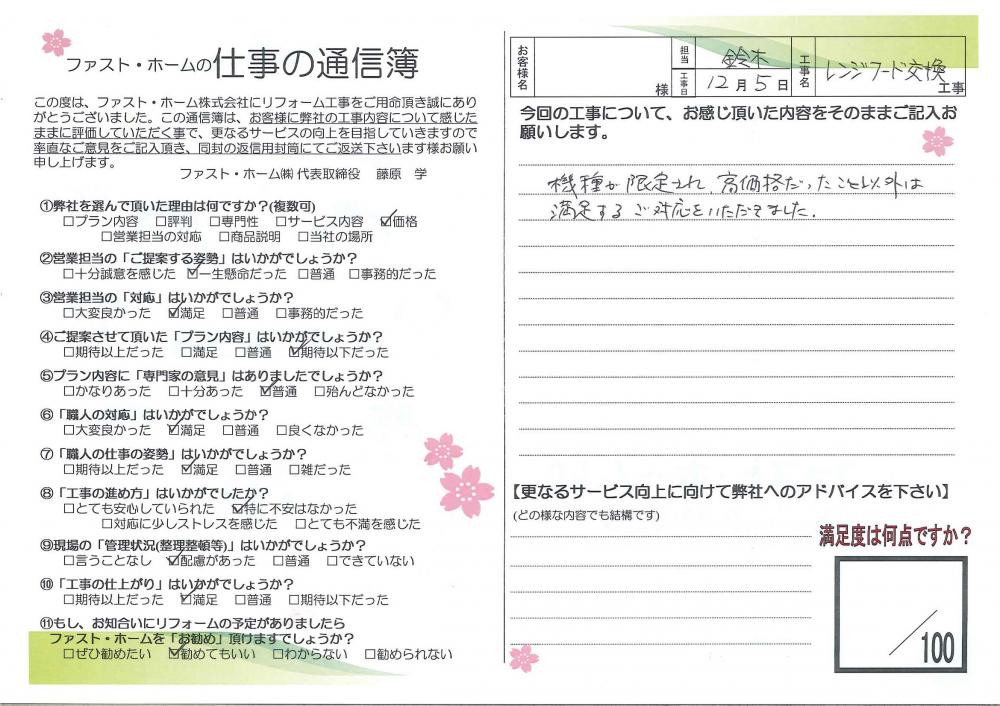 ファスト・ホームの仕事の通信簿
この度は、ファスト・ホーム株式会社にリフォーム工事をご用命頂き誠にあり
がとうございました。この通信簿は、お客様に弊社の工事内容について感じた
ままに評価していただく事で、更なるサービスの向上を目指していきますので
率直なご意見をご記入頂き、同封の返信用封筒にてご返送下さいます様お願い
申し上げます。
ファスト・ホーム㈱ 代表取締役 藤原 学
①弊社を選んで頂いた理由は何ですか?(複数可)
□プラン内容 □評判 □専門性 □サービス内容 ☑価格
□営業担当の対応 □商品説明 □当社の場所
②営業担当の「ご提案する姿勢」はいかがでしょうか?
□十分誠意を感じた ☑一生懸命だった □普通 □事務的だった
③営業担当の「対応」はいかがでしょうか?
□大変良かった ☑満足 □普通 □事務的だった
④ご提案させて頂いた「プラン内容」はいかがでしょうか?
□期待以上だった □満足 □普通 ☑期待以下だった
⑤プラン内容に「専門家の意見」はありましたでしょうか?
□かなりあった □十分あった ☑普通 □殆んどなかった
⑥「職人の対応」はいかがでしょうか?
□大変良かった ☑満足 □普通 □良くなかった
⑦「職人の仕事の姿勢」はいかがでしょうか?
□期待以上だった ☑満足 □普通 □雑だった
⑧「工事の進め方」はいかがでしたか?
□とても安心していられた ☑特に不安はなかった
□対応に少しストレスを感じた □とても不満を感じた
⑨現場の「管理状況(整理整頓等)」はいかがでしょうか?
□言うことなし ☑配慮があった □普通 □できていない
⑩「工事の仕上がり」はいかがでしょうか?
□期待以上だった ☑満足 □普通 □期待以下だった
⑪もし、お知合いにリフォームの予定がありましたら
ファスト・ホームを「お勧め」頂けますでしょうか?
□ぜひ勧めたい ☑勧めてもいい □わからない □勧められない
お客様名 様 担当 鈴木 工事日 12月5日 工事名 レンジフード交換 工事
今回の工事について、お感じ頂いた内容をそのままご記入お
願いします。
機種が限定され、高価格だったこと以外は
満足するご対応をいただきました。
【更なるサービス向上に向けて弊社へのアドバイスを下さい】
(どの様な内容でも結構です)
満足度は何点ですか?
/100